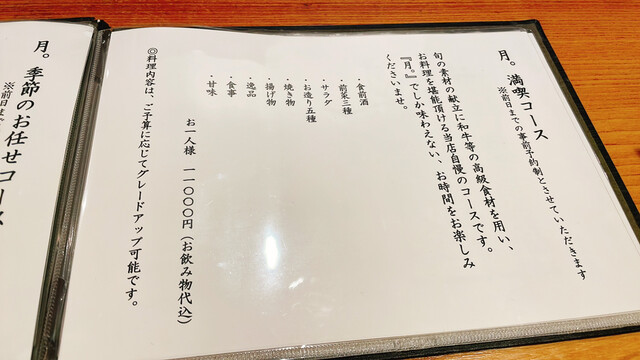 月。満喫コース
※前日までの事前予約制とさせていただきます
旬の素材の献立に和牛等の高級食材を用い、
お料理を堪能頂ける当店自慢のコースです。
『月。』でしか味わえない、お時間をお楽しみ
くださいませ。
・食前酒
・前菜三種
・サラダ
・お造り五種
・焼き物
・揚げ物
・逸品
・食事
・甘味
お一人様 一一〇〇〇円（お飲み物代込）
◎料理内容は、ご予算に応じてグレードアップ可能です。
月。季節のお任せコース
※前日まで